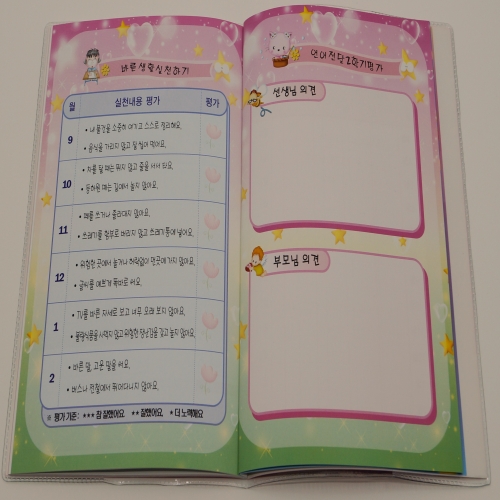 바른생활실천하기
월 실천내용 평가 평가
9
• 내 물건을 소중히 여기고 스스로 정리해요.
• 음식을 가리지 않고 잘 씹어 먹어요.
10
• 차를 탈 때는 뛰지 않고 줄을 서서 타요.
• 등하원 때는 길에서 놀지 않아요.
11
• 떼를 쓰거나 졸라대지 않아요.
• 쓰레기를 함부로 버리지 않고 쓰레기통에 넣어요.
12
• 위험한 곳에서 놀거나 허락없이 먼곳에 가지 않아요.
• 글씨를 예쁘게 똑바로 써요.
1
• TV를 바른 자세로 보고 너무 오래 보지 않아요.
• 불량식품을 사먹지 않고 위험한 장난감을 갖고 놀지 않아요.
2
• 바른 말, 고운 말을 써요.
• 버스나 전철에서 뛰어다니지 않아요.
※ 평가기준 : *** 참 잘했어요 ** 잘했어요 * 더 노력해요
언어전달 2학기평가
선생님 의견
부모님 의견